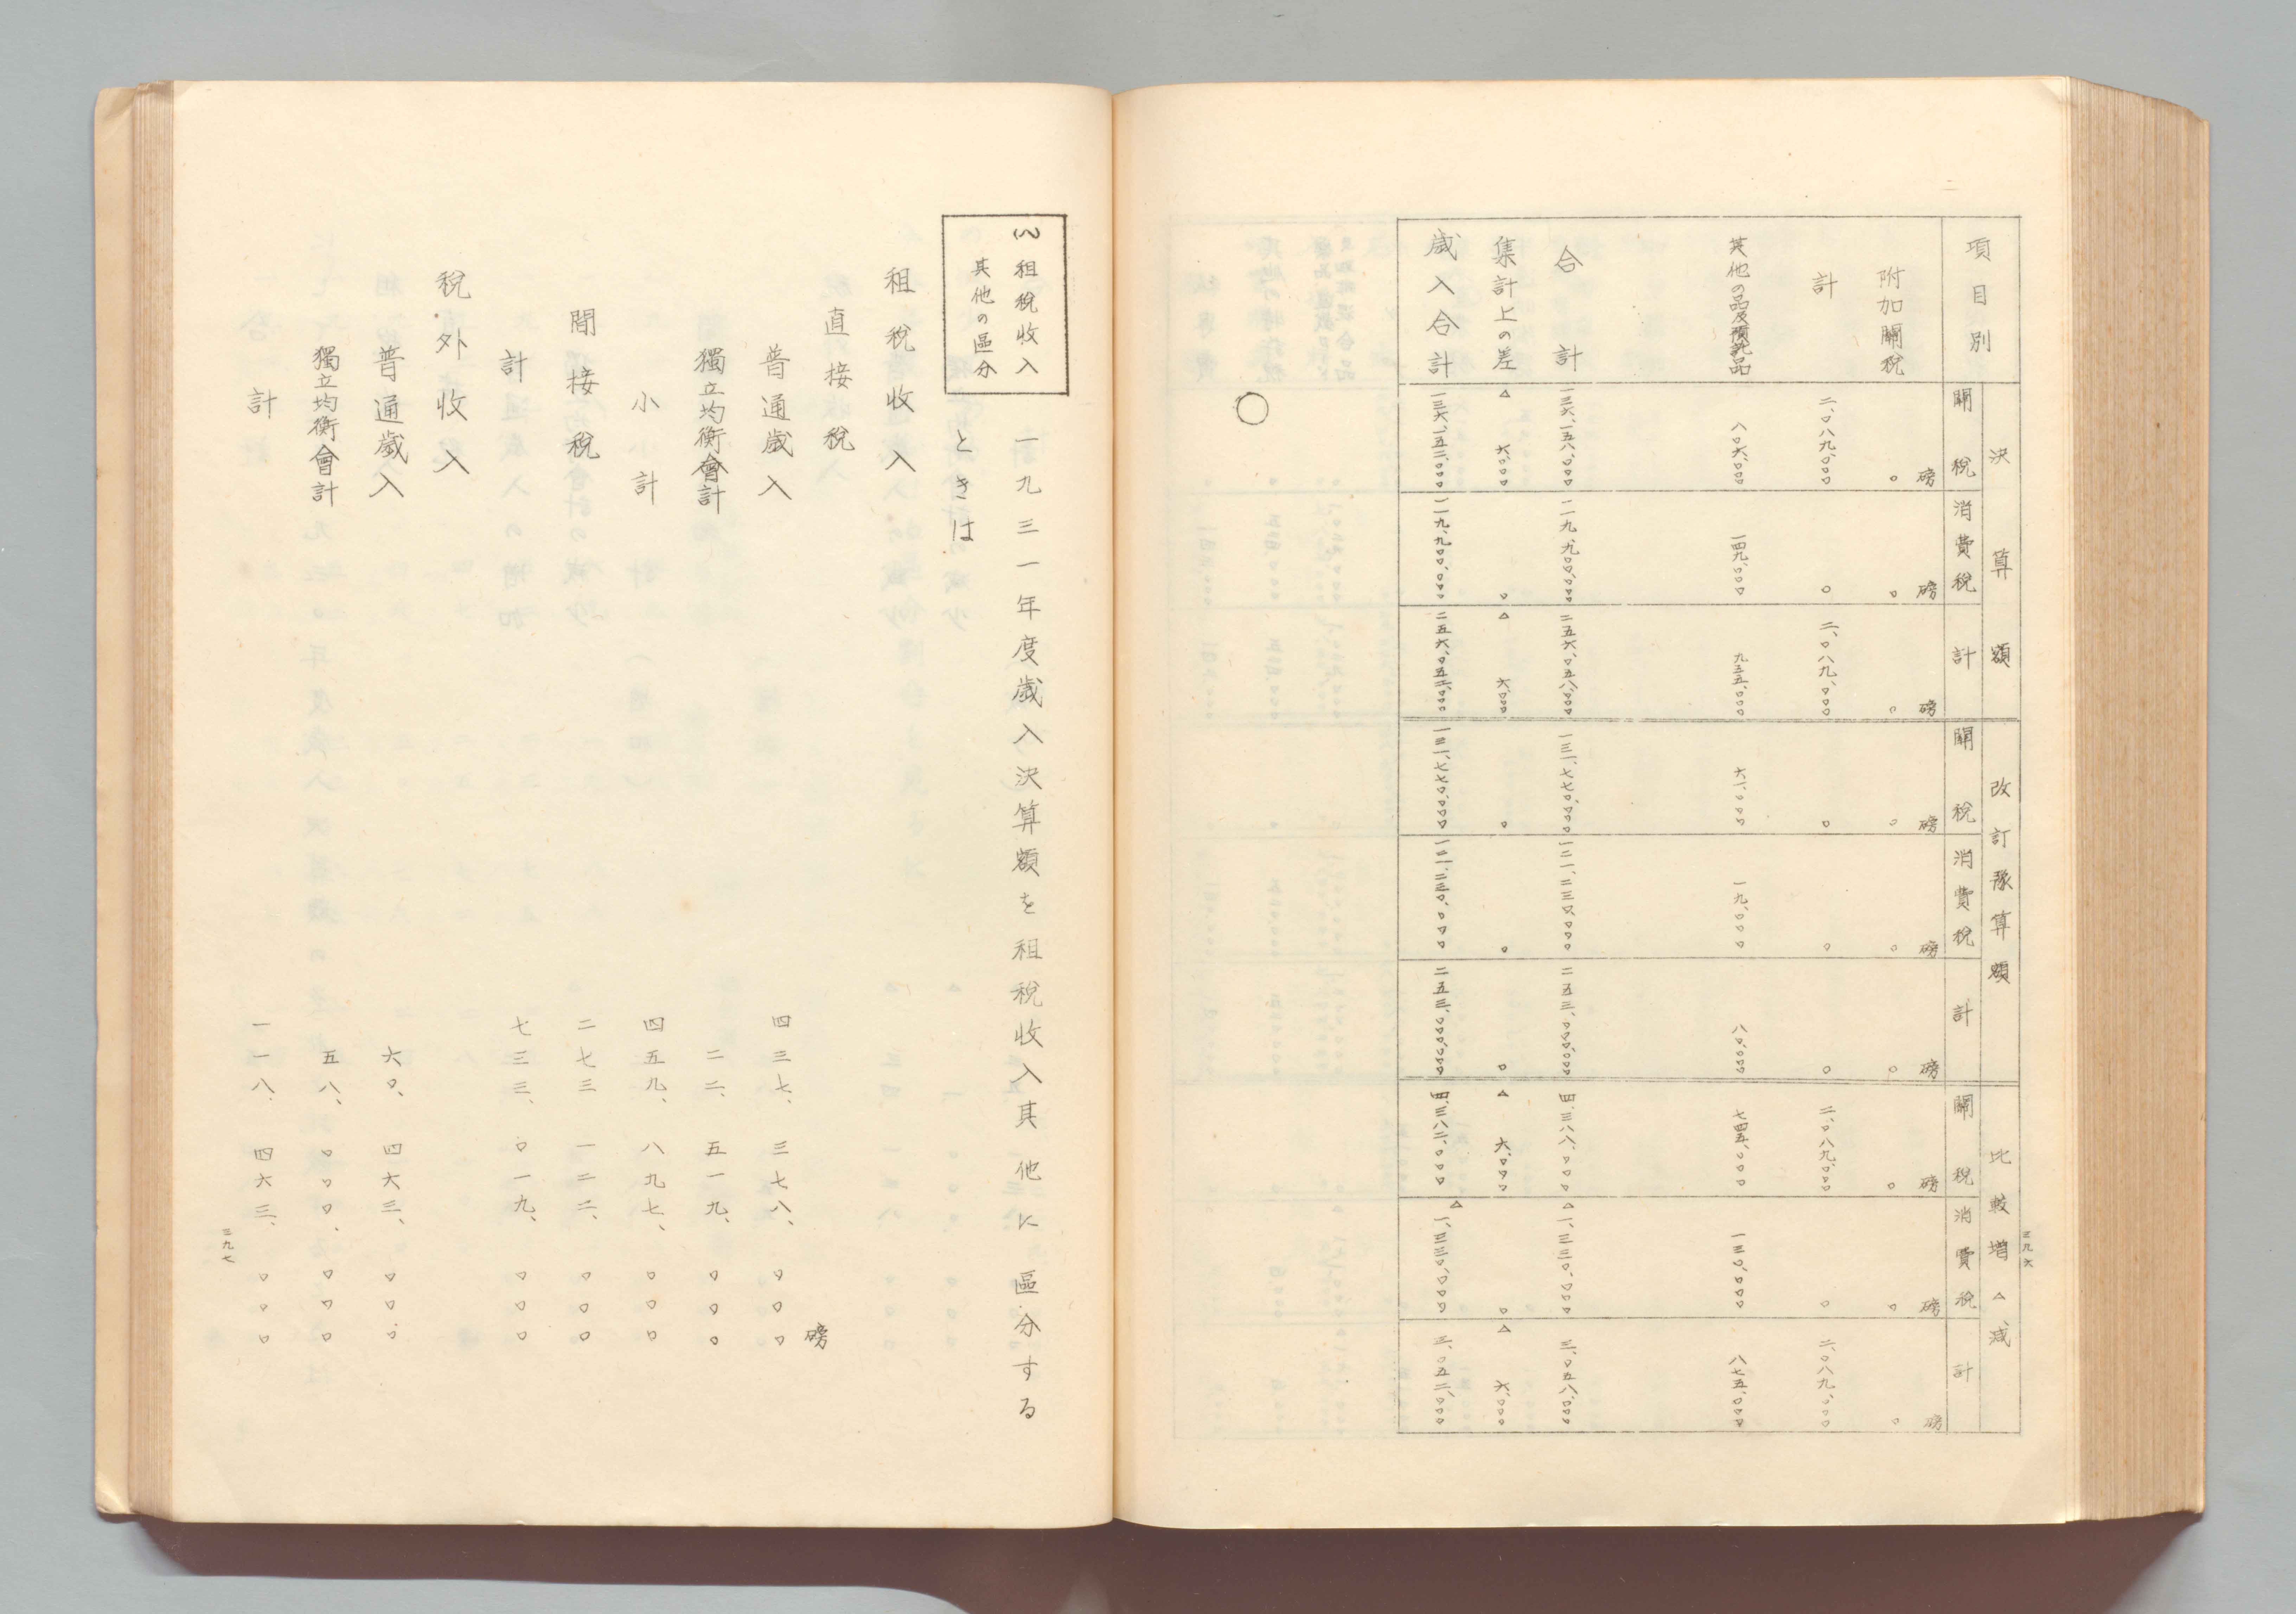 三九六
項目別 決算額 改訂豫算額 比較増△減
關稅 消費稅 計 關稅 消費稅 計 關稅 消費稅 計
磅 磅 磅 磅 磅 磅 磅 磅 磅
附加關稅 〇 〇 〇 〇 〇 〇 〇 〇 〇
計 二、〇八九、〇〇〇 〇 二、〇八九、〇〇〇 〇 〇 〇 二、〇八九、〇〇〇 〇 二、〇八九、〇〇〇
其他の品及預託品 八〇六、〇〇〇 一四九、〇〇〇 九五五、〇〇〇 六一、〇〇〇 一九、〇〇〇 八〇、〇〇〇 七四五、〇〇〇 一三〇、〇〇〇 八七五、〇〇〇
合計 一三六、一五八、〇〇〇 一一九、九〇〇、〇〇〇 二五六、〇五八、〇〇〇 一三一、七七〇、〇〇〇 一二一、二三〇、〇〇〇 二五三、〇〇〇、〇〇〇 四、三八八、〇〇〇 △一、三三〇、〇〇〇 三、〇五八、〇〇〇
集計上の差 △六、〇〇〇 〇 △六、〇〇〇 〇 〇 〇 △六、〇〇〇 〇 △六、〇〇〇
歳入合計 一三六、一五二、〇〇〇 一一九、九〇〇、〇〇〇 二五六、〇五二、〇〇〇 一三一、七七〇、〇〇〇 一二一、二三〇、〇〇〇 二五三、〇〇〇、〇〇〇 四、三八二、〇〇〇 △一、三三〇、〇〇〇 三、〇五二、〇〇〇
(八)租稅收入
其他の區分
一九三一年度歲入決算額を租稅收入其他に區分する
ときは
租稅收入
直接稅 磅
普通歲入 四三七、三七八、〇〇〇
獨立均衡會計 二二、五一九、〇〇〇
小計 四五九、八九七、〇〇〇
間接稅 二七三、一二二、〇〇〇
計 七三三、〇一九、〇〇〇
稅外收入
普通歲入 六〇、四六三、〇〇〇
獨立均衡會計 五八、〇〇〇、〇〇〇
計 一一八、四六三、〇〇〇
三九七